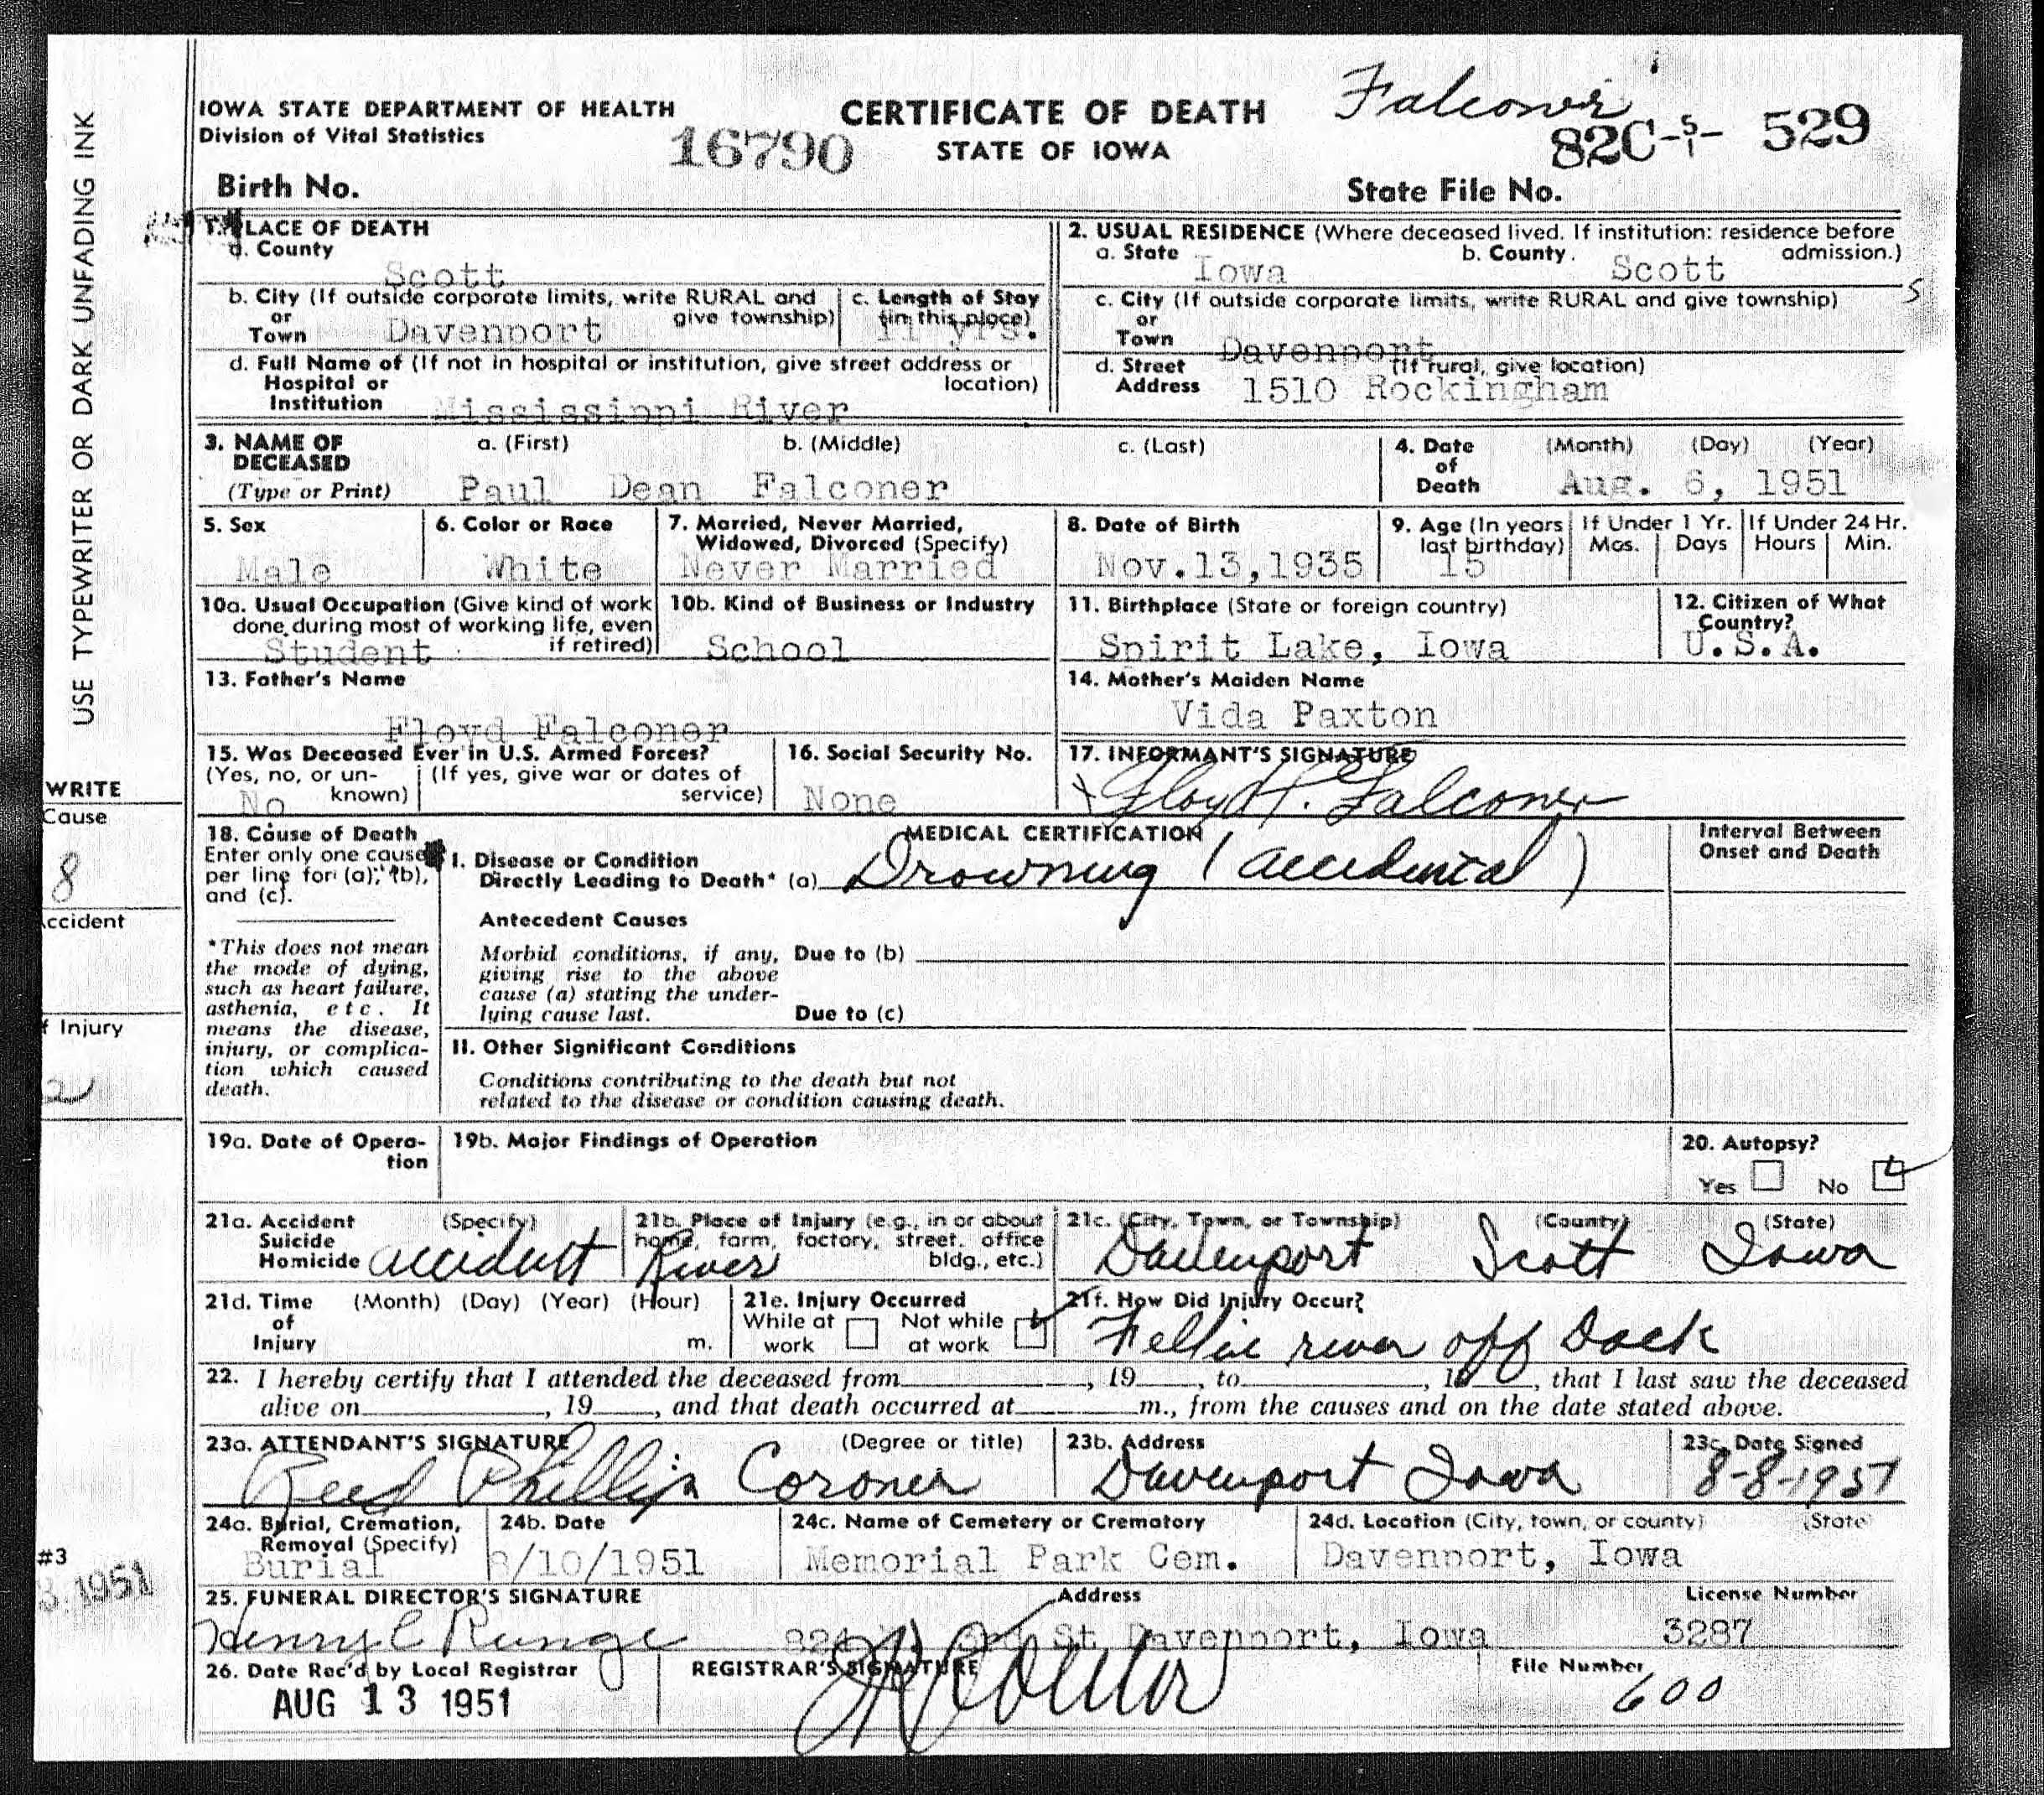 Falconer
IOWA STATE DEPARTMENT OF HEALTH
Division of Vital Statistics
16790
CERTIFICATE OF DEATH
STATE OF IOWA
82C-5/1- 529
Birth No.
State File No.
USE TYPEWRITER OR DARK UNFADING INK
1. PLACE OF DEATH
a. County
Scott
b. City (If outside corporate limits, write RURAL and
or give township)
Town Davenport
c. Length of Stay
(in this place)
11 yrs.
d. Full Name of (If not in hospital or institution, give street address or
Hospital or location)
Institution Mississippi River
2. USUAL RESIDENCE (Where deceased lived. If institution: residence before
a. State Iowa b. County. Scott admission.)
c. City (If outside corporate limits, write RURAL and give township)
or
Town Davenport
d. Street (If rural, give location)
Address 1510 Rockingham
S
3. NAME OF a. (First) b. (Middle) c. (Last)
DECEASED
(Type or Print) Paul Dean Falconer
4. Date (Month) (Day) (Year)
of
Death Aug. 6, 1951
5. Sex
Male
6. Color or Race
White
7. Married, Never Married,
Widowed, Divorced (Specify)
Never Married
8. Date of Birth
Nov.13,1935
9. Age (In years
last birthday)
15
If Under 1 Yr.
Mos. Days
If Under 24 Hr.
Hours Min.
10a. Usual Occupation (Give kind of work
done during most of working life, even
if retired)
Student
10b. Kind of Business or Industry
School
11. Birthplace (State or foreign country)
Spirit Lake, Iowa
12. Citizen of What
Country?
U.S.A.
13. Father's Name
Floyd Falconer
14. Mother's Maiden Name
Vida Paxton
15. Was Deceased Ever in U.S. Armed Forces?
(Yes, no, or un- (If yes, give war or dates of
known) service)
No
16. Social Security No.
None
17. INFORMANT'S SIGNATURE
Floyd H. Falconer
WRITE
Cause
8
ccident
f Injury
2
18. Cause of Death
Enter only one cause
per line for (a), (b),
and (c).
*This does not mean
the mode of dying,
such as heart failure,
asthenia, etc. It
means the disease,
injury, or complica-
tion which caused
death.
MEDICAL CERTIFICATION
I. Disease or Condition
Directly Leading to Death* (a) Drowning (accidental)
Antecedent Causes
Morbid conditions, if any, Due to (b)
giving rise to the above
cause (a) stating the under-
lying cause last. Due to (c)
II. Other Significant Conditions
Conditions contributing to the death but not
related to the disease or condition causing death.
Interval Between
Onset and Death
19a. Date of Opera-
tion
19b. Major Findings of Operation
20. Autopsy?
Yes No
21a. Accident (Specify)
Suicide
Homicide accident
21b. Place of Injury (e.g., in or about
home, farm, factory, street, office
bldg., etc.)
River
21c. (City, Town, or Township) (County) (State)
Davenport Scott Iowa
21d. Time (Month) (Day) (Year) (Hour)
of
Injury m.
21e. Injury Occurred
While at Not while
work at work
21f. How Did Injury Occur?
Fell in river off Dock
22. I hereby certify that I attended the deceased from , 19 , to , 19 , that I last saw the deceased
alive on , 19 , and that death occurred at m., from the causes and on the date stated above.
23a. ATTENDANT'S SIGNATURE (Degree or title)
Reed Phillips Coroner
23b. Address
Davenport Iowa
23c. Date Signed
8-8-1951
24a. Burial, Cremation,
Removal (Specify)
Burial
24b. Date
8/10/1951
24c. Name of Cemetery or Crematory
Memorial Park Cem.
24d. Location (City, town, or county) (State)
Davenport, Iowa
#3
3. 1951
25. FUNERAL DIRECTOR'S SIGNATURE Address License Number
Henry C Runge 824 St Davenport, Iowa 3287
26. Date Rec'd by Local Registrar
AUG 13 1951
REGISTRAR'S SIGNATURE
File Number
600